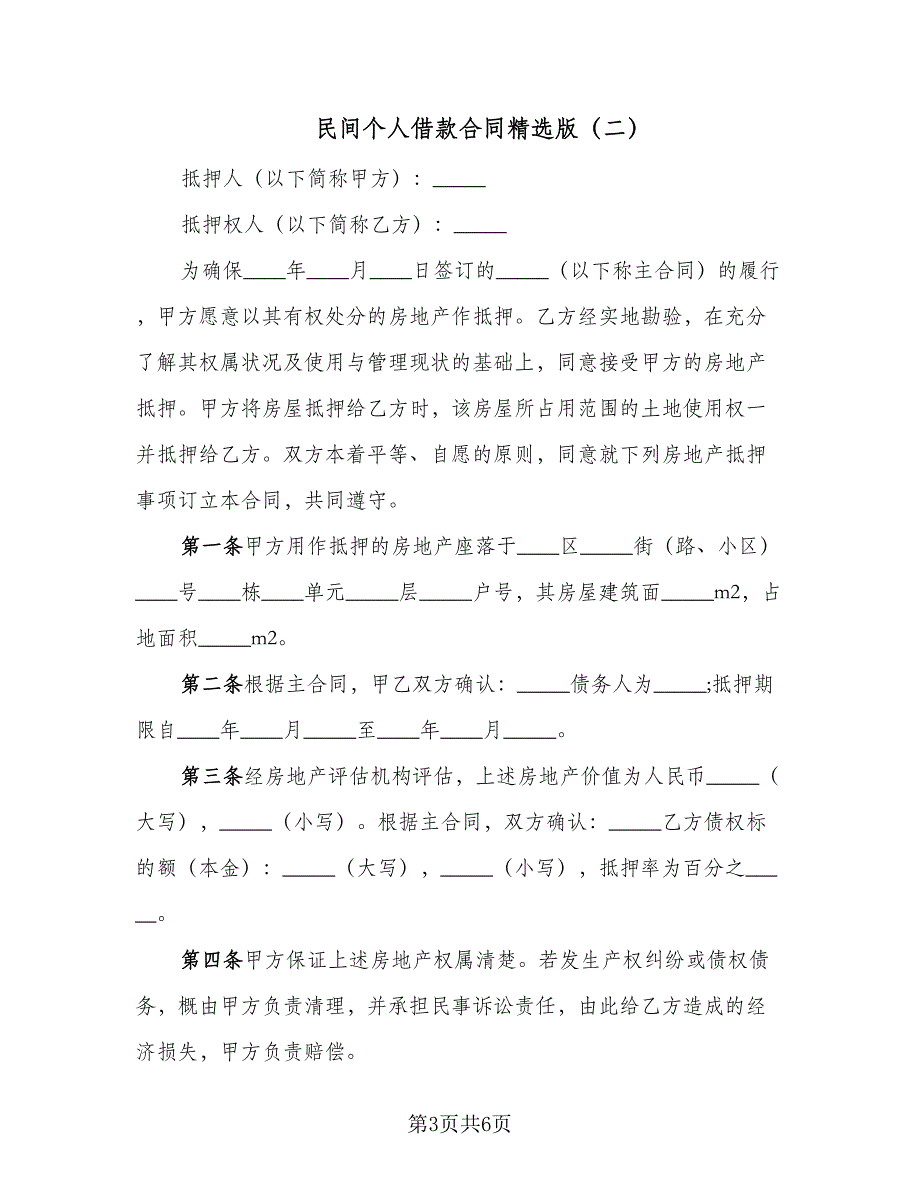 民间个人借款合同精选版（二）
抵押人（以下简称甲方）：_____
抵押权人（以下简称乙方）：_____
为确保____年____月____日签订的_____（以下称主合同）的履行
，甲方愿意以其有权处分的房地产作抵押。乙方经实地勘验，在充分
了解其权属状况及使用与管理现状的基础上，同意接受甲方的房地产
抵押。甲方将房屋抵押给乙方时，该房屋所占用范围的土地使用权一
并抵押给乙方。双方本着平等、自愿的原则，同意就下列房地产抵押
事项订立本合同，共同遵守。
第一条甲方用作抵押的房地产座落于____区_____街（路、小区）
____号____栋____单元_____层_____户号，其房屋建筑面_____m2，占
地面积_____m2。
第二条根据主合同，甲乙双方确认：_____债务人为_____;抵押期
限自____年____月_____至____年____月_____。
第三条经房地产评估机构评估，上述房地产价值为人民币_____（
大写），_____（小写）。根据主合同，双方确认：_____乙方债权标
的额（本金）：_____（大写），_____（小写），抵押率为百分之___
__。
第四条甲方保证上述房地产权属清楚。若发生产权纠纷或债权债
务，概由甲方负责清理，并承担民事诉讼责任，由此给乙方造成的经
济损失，甲方负责赔偿。
第3页共6页